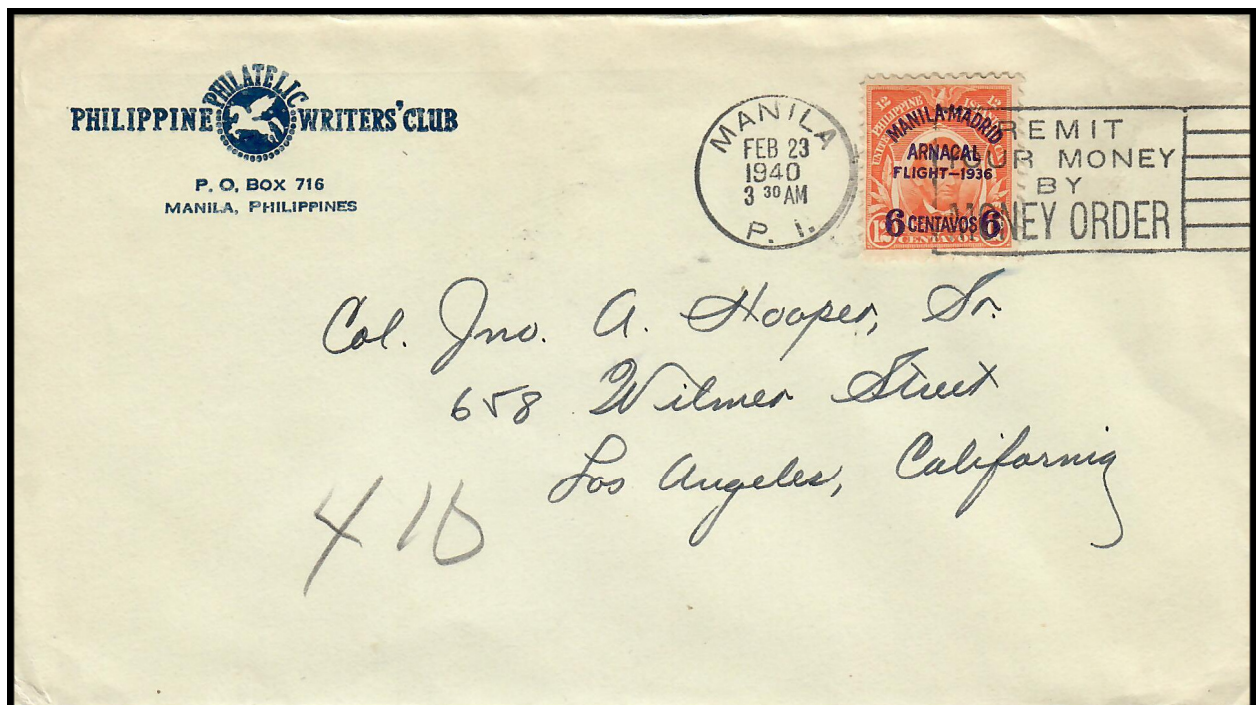 PHILIPPINE PHILATELIC WRITERS' CLUB
P. O. BOX 716
MANILA, PHILIPPINES
MANILA
FEB 23
1940
3 30 AM
P. I.
12 PHILIPPINE 12
MANILA-MADRID
ARNACAL
FLIGHT-1936
6 CENTAVOS 6
CENTAVOS
REMIT
YOUR MONEY
BY
MONEY ORDER
Col. Jno. A. Hooper, Sr.
658 Wilmer Street
Los Angeles, California